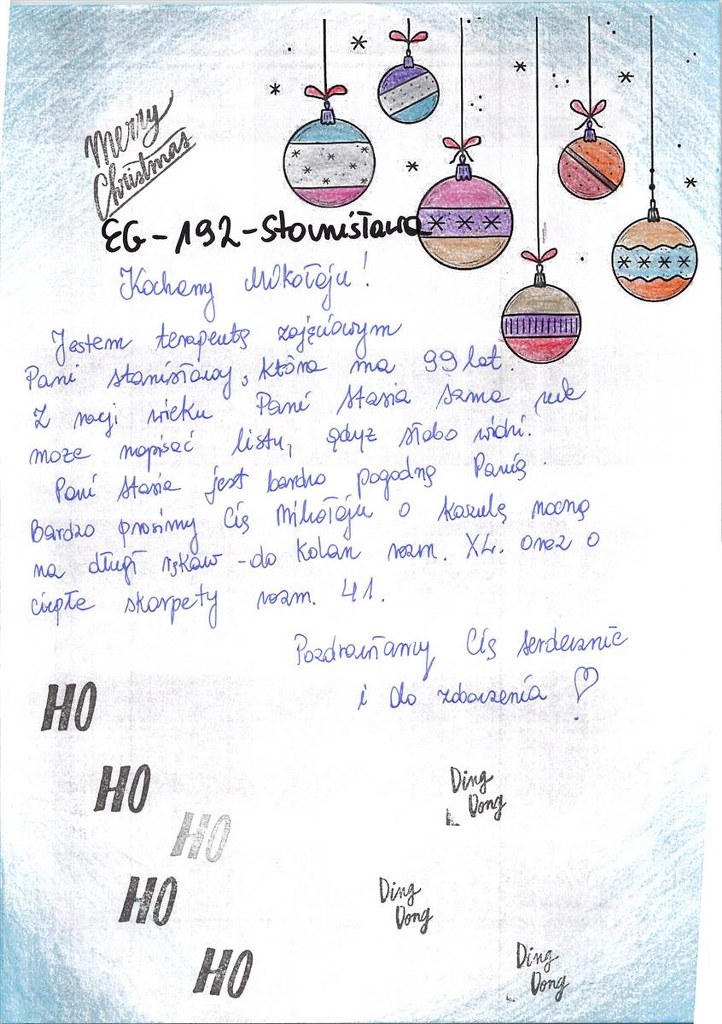 Merry
Christmas
EG-192-Stanisława
Kochany Mikołaju!
Jestem terapeutą zajęciowym
Pani Stanisławy, która ma 99 lat.
Z racji wieku Pani Stasia sama nie
może napisać listu, gdyż słabo widzi.
Pani Stasia jest bardzo pogodną Panią.
Bardzo prosimy Cię Mikołaju o koszulę nocną
na długi rękaw - do kolan rozm. XL. oraz o
ciepłe skarpety rozm. 41.
Pozdrawiamy Cię serdecznie
i do zobaczenia ♡
HO
HO
Ding
Dong
HO
HO
Ding
Dong
HO
Ding
Dong